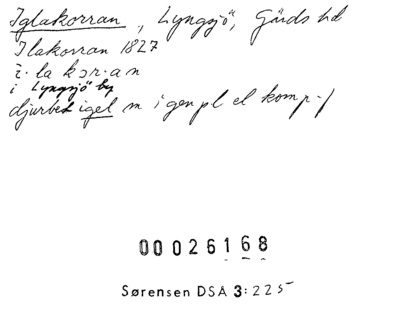 Iglakorran, Lyngsjö, Gärds hd
Ilakorran 1827
ī·la kɔr·an
i Lyngsjö by
djurbet igel m i gen pl el komp-f
00026168
Sørensen DSÅ 3:225